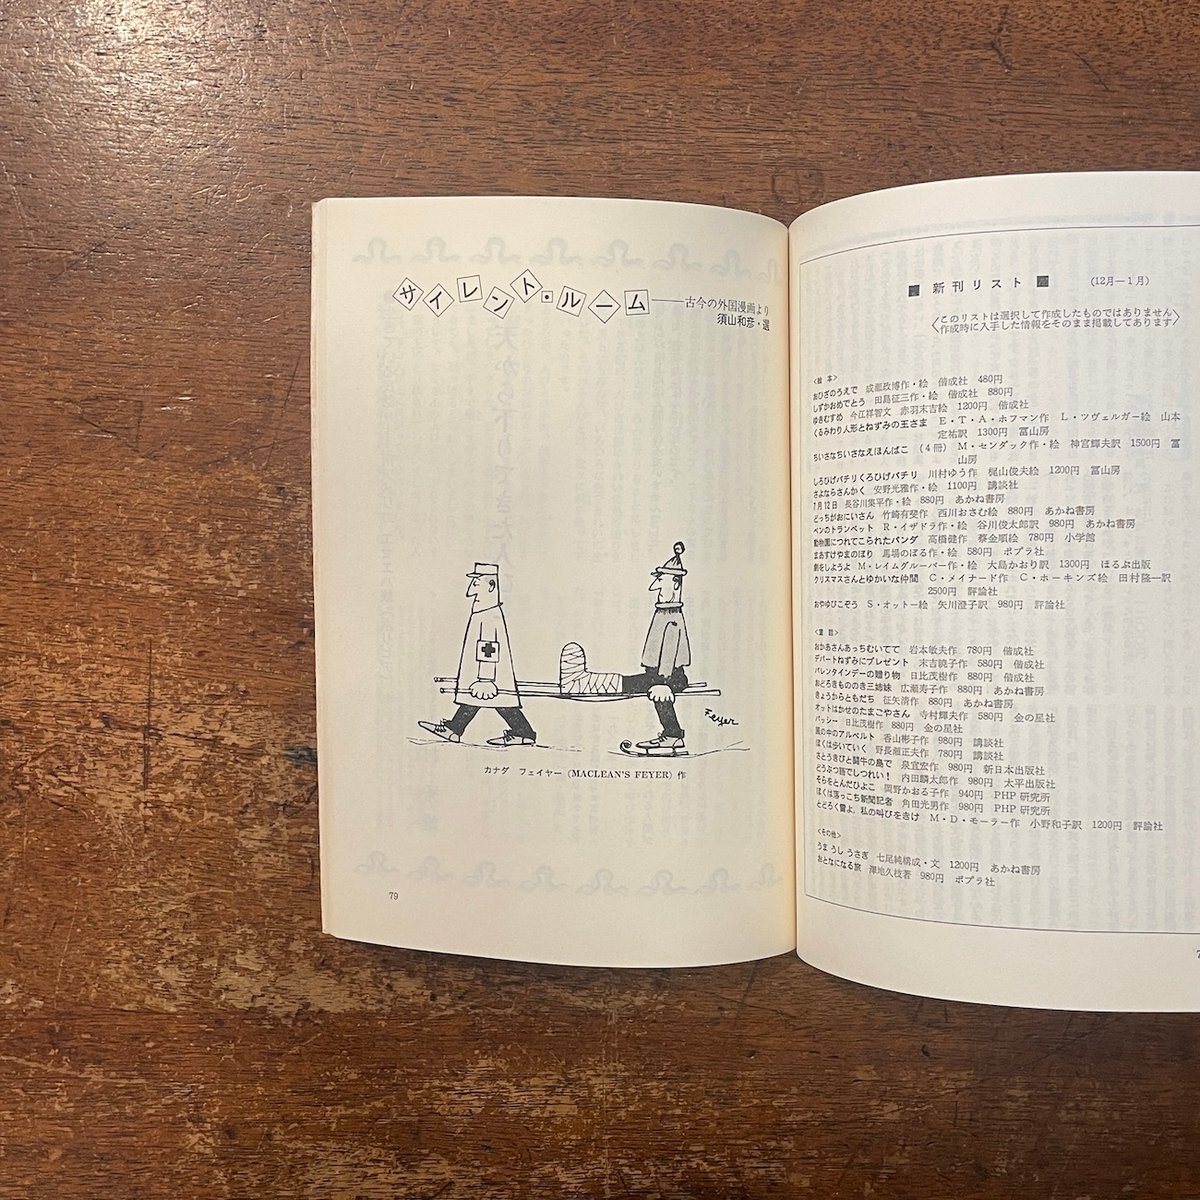 サイレント・ルーム——古今の外国漫画より
須山和彦・選
Feyer
カナダ　フェイヤー (MACLEAN'S FEYER) 作
79
■ 新刊リスト ■ (12月―1月)
〈このリストは選択して作成したものではありません
作成時に入手した情報をそのまま掲載してあります〉
〈絵本〉
おひざのうえで　成瀬政博作・絵　偕成社　480円
しずかおめでとう　田島征三作・絵　偕成社　880円
ゆきむすめ　今江祥智文　赤羽末吉絵　1200円　偕成社
くるみわり人形とねずみの王さま　E・T・A・ホフマン作　L・ツヴェルガー絵　山本
定祐訳　1300円　冨山房
ちいさなちいさなえほんばこ　(4冊)　M・センダック作・絵　神宮輝夫訳　1500円　冨
山房
しろひげパチリくろひげパチリ　川村ゆう作　梶山俊夫絵　1200円　冨山房
さよならさんかく　安野光雅作・絵　1100円　講談社
7月12日　長谷川集平作・絵　880円　あかね書房
どっちがおにいさん　竹崎有斐作　西川おさむ絵　880円　あかね書房
ベンのトランペット　R・イザドラ作・絵　谷川俊太郎訳　980円　あかね書房
動物園につれてこられたパンダ　高橋健作　蔡金順絵　780円　小学館
まあすけやまのぼり　馬場のぼる作・絵　580円　ポプラ社
劇をしようよ　M・レイムグルーバー作・絵　大島かおり訳　1300円　ほるぷ出版
クリスマスさんとゆかいな仲間　C・メイナード作　C・ホーキンズ絵　田村隆一訳
2500円　評論社
おやゆびこぞう　S・オットー絵　矢川澄子訳　980円　評論社
〈童話〉
おかあさんあっちむいてて　岩本敏夫作　780円　偕成社
デパートねずみにプレゼント　末吉暁子作　580円　偕成社
バレンタインデーの贈り物　日比茂樹作　880円　偕成社
おどろきもののき三姉妹　広瀬寿子作　880円　あかね書房
きょうからともだち　征矢清作　880円　あかね書房
オットはかせのたまごやさん　寺村輝夫作　580円　金の星社
バッシー　日比茂樹作　880円　金の星社
風の中のアルベルト　香山彬子作　980円　講談社
ぼくは歩いていく　野長瀬正夫作　780円　講談社
さとうきびと闘牛の島で　泉宜宏作　980円　新日本出版社
どうぶつ語でしつれい！　内田麟太郎作　980円　太平出版社
そらをとんだひよこ　岡野かおる子作　940円　PHP研究所
ぼくは落っこち新聞記者　角田光男作　980円　PHP研究所
とどろく雷よ，私の叫びをきけ　M・D・モーラー作　小野和子訳　1200円　評論社
〈その他〉
うま うし うさぎ　七尾純構成・文　1200円　あかね書房
おとなになる旅　澤地久枝著　980円　ポプラ社